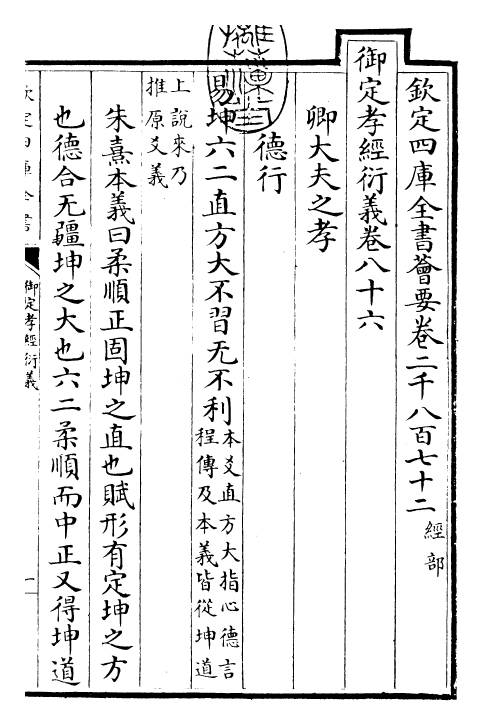 欽定四庫全書薈要卷二千八百七十二 經部
御定孝經衍義卷八十六
卿大夫之孝
德行
易坤六二直方大不習无不利 本爻直方大指心德言
程傳及本義皆從坤道
上說來乃
推原爻義
朱熹本義曰柔順正固坤之直也賦形有定坤之方
也德合无疆坤之大也六二柔順而中正又得坤道
欽定四庫全書
御定孝經衍義
一